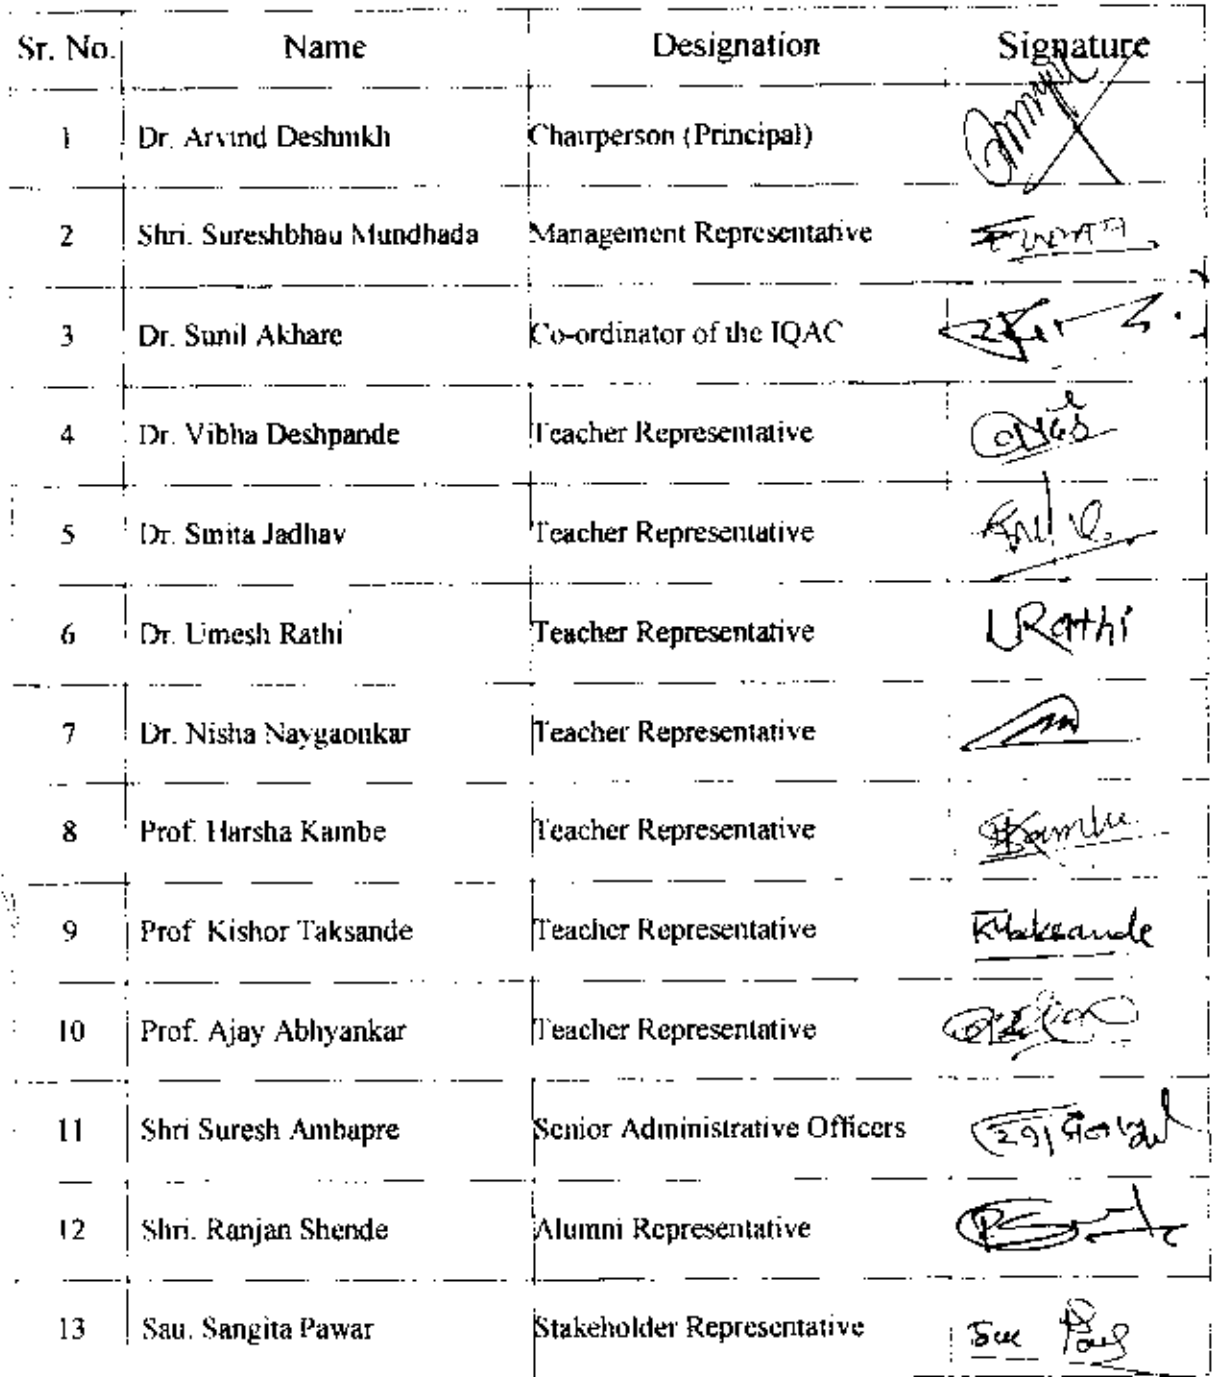 Sr. No. Name Designation Signature
1 Dr. Arvind Deshmkh Chairperson (Principal)
2 Shri. Sureshbhau Mundhada Management Representative
3 Dr. Sunil Akhare Co-ordinator of the IQAC
4 Dr. Vibha Deshpande Teacher Representative
5 Dr. Smita Jadhav Teacher Representative
6 Dr. Umesh Rathi Teacher Representative URathi
7 Dr. Nisha Naygaonkar Teacher Representative
8 Prof. Harsha Kambe Teacher Representative
9 Prof Kishor Taksande Teacher Representative
10 Prof. Ajay Abhyankar Teacher Representative
11 Shri Suresh Ambapre Senior Administrative Officers
12 Shri. Ranjan Shende Alumni Representative
13 Sau. Sangita Pawar Stakeholder Representative